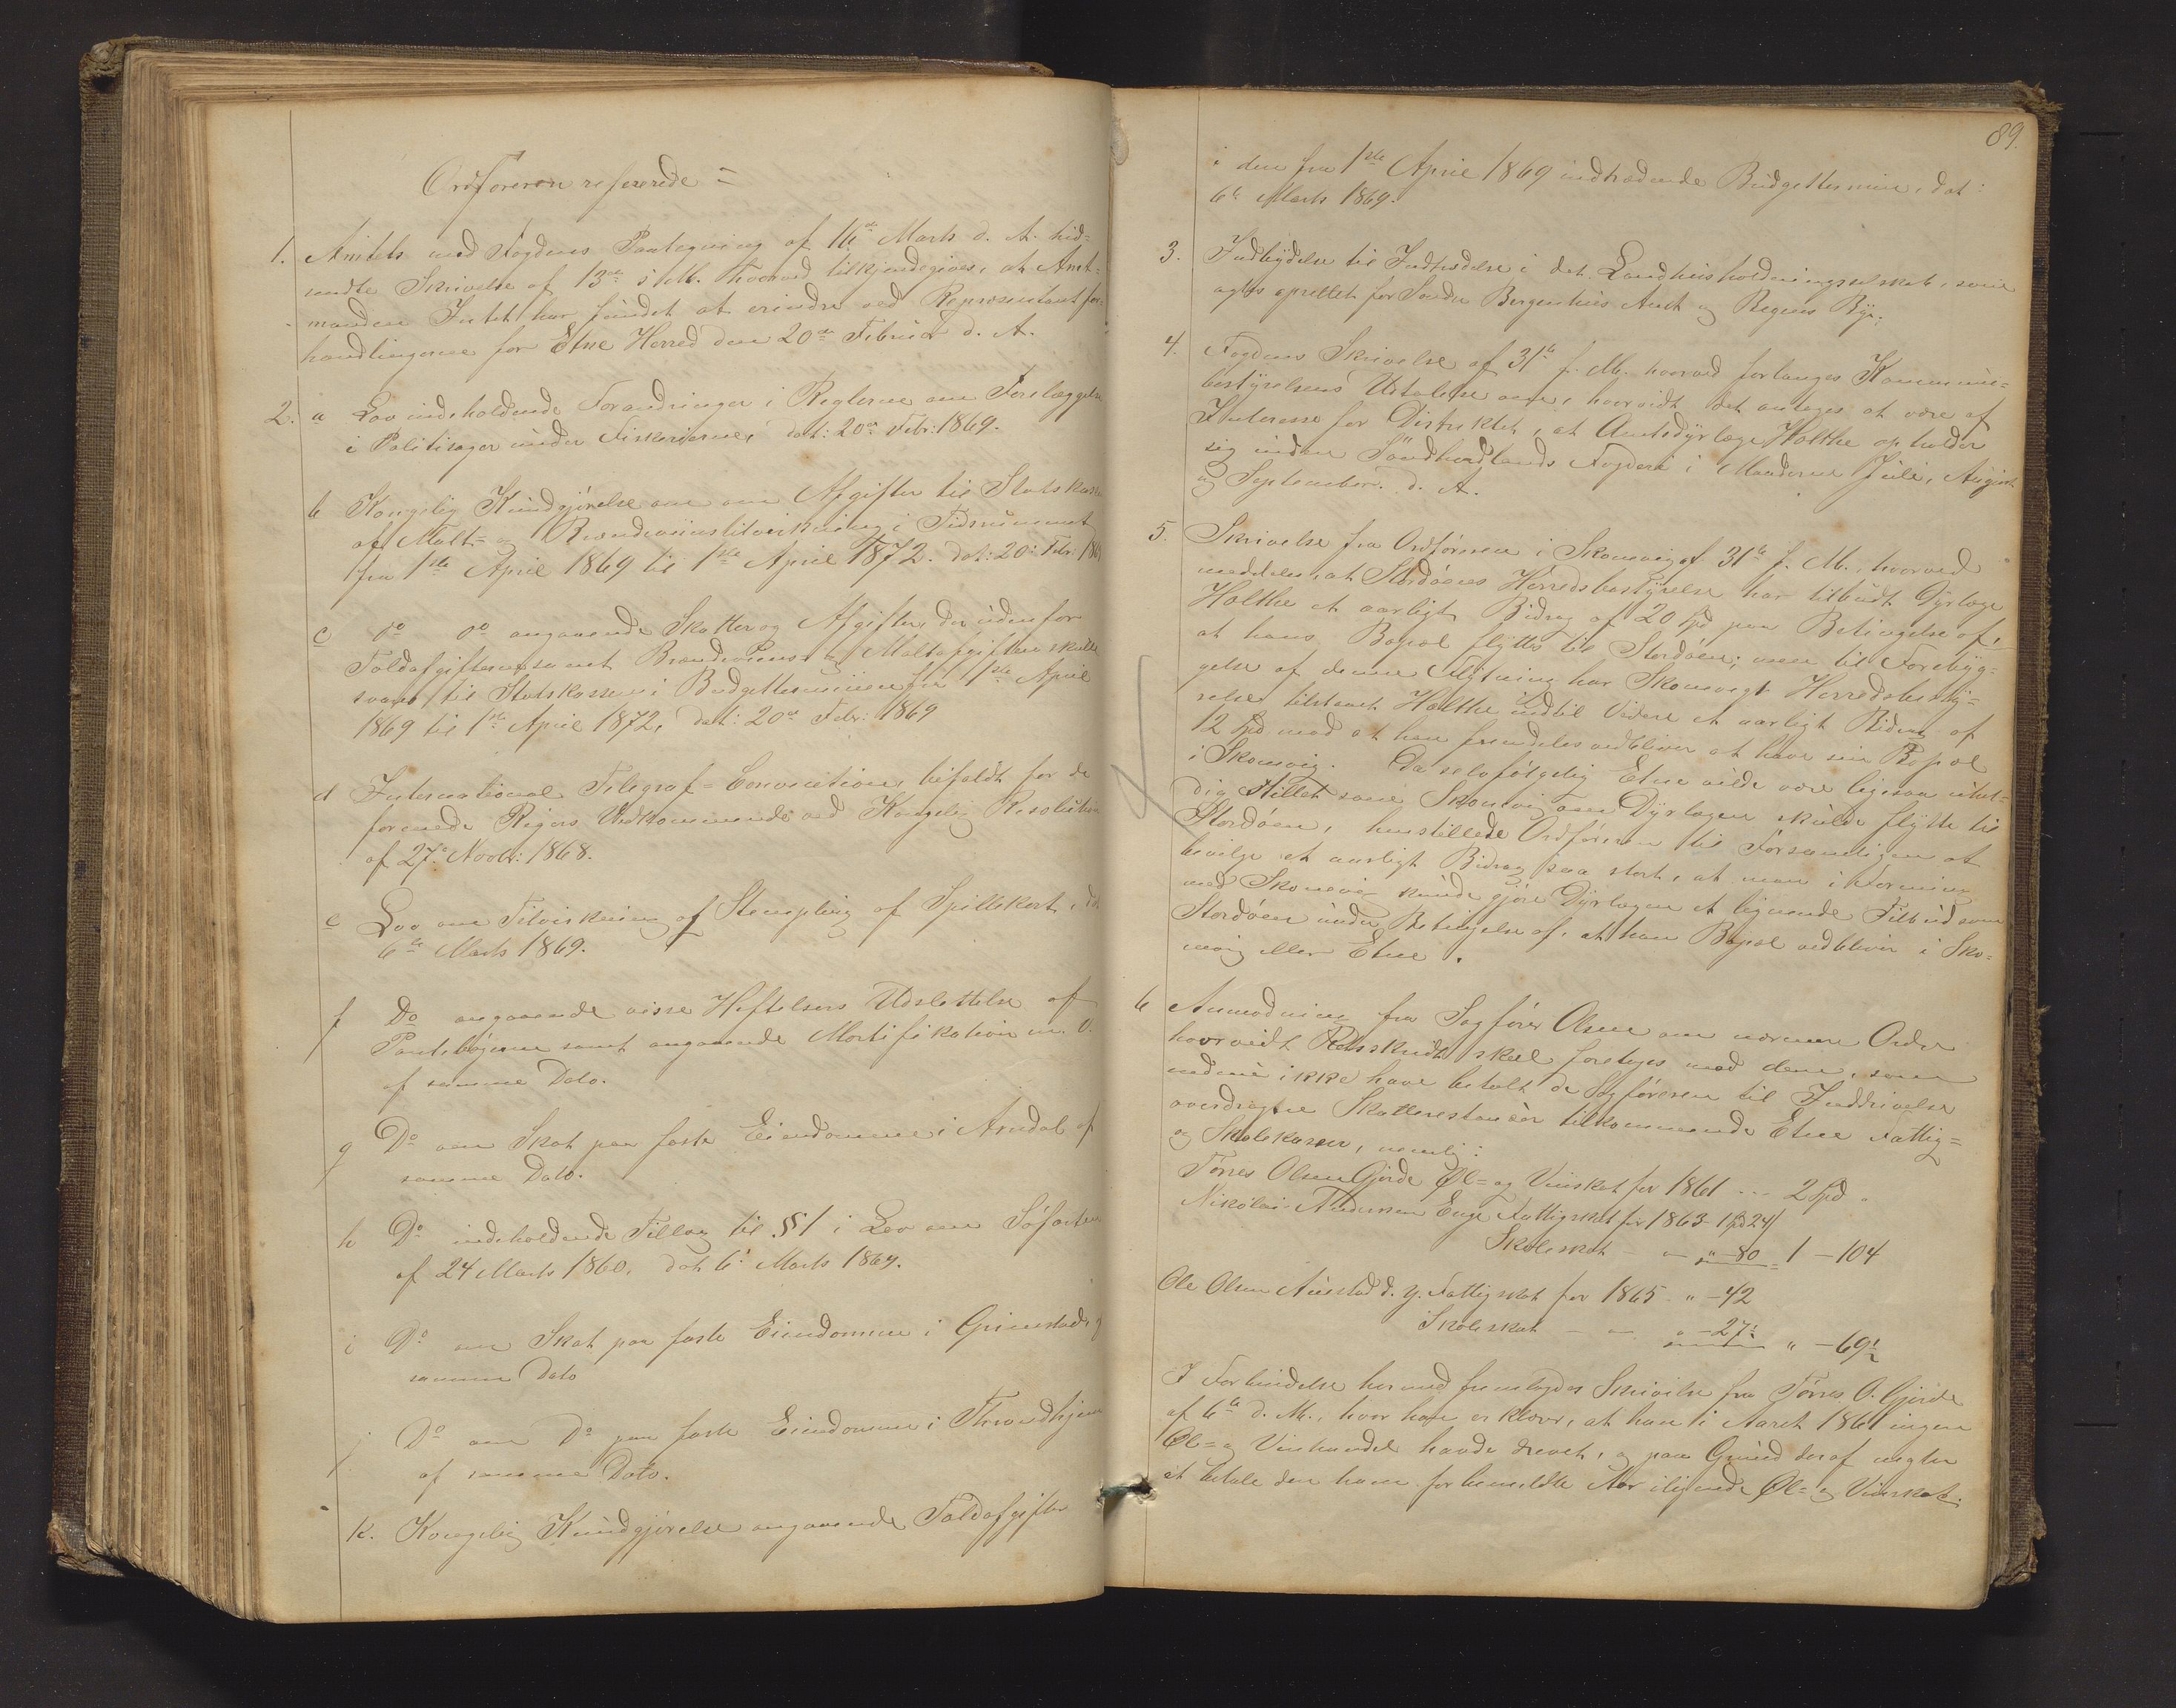 Ordføreren refererede =
1. Amtets med Fogdens Paategning af 16de Marts d. A. hid=
sendte Skrivelse af 13de s. M. hvorved tilkjendegives, at Amt=
manden Intet har fundet at erindre ved Repræsentantfor=
handlingerne for Etne Herred den 20de Februar d. A.
2. a Lov indeholdende Forandringer i Reglerne om Forelæggelse
i Politisager under Fiskerierne, dat: 20de Febr: 1869.
b Kongelig Kundgjørelse om om Afgifter til Statskassen
af Malt- og Brændeviinstilvirkning i Tidsrummet
fra 1ste April 1869 til 1ste April 1872. dat: 20: Febr: 1869
c do do angaaende Skatter og Afgifter, der udenfor
Toldafgifterne samt Brændeviins- og Maltafgiften skulle
svares til Statskassen i Budgetterminen fra 1ste April
1869 til 1ste April 1872, dat: 20de Febr: 1869
d International Telegraf-Convention, bifaldt for de
forenede Rigers Vedkommende ved Kongelig Resolution
af 27de Novbr: 1868.
e Lov om Tilvirkning af Stempling af Spillekort,
6te Marts 1869.
f Do angaaende visse Heftelsers Udslettelse af
Pantebøgerne samt angaaende Mortifikation m. v.
af samme Dato.
g Do om Skat paa faste Eiendomme i Arndal af
samme Dato.
h Do indeholdende Tillæg til §1 i Lov om Søfarten
af 24 Marts 1860, dat 6: Marts 1869.
i Do om Skat paa faste Eiendomme i Grimstad af
samme Dato
j Do om Do paa faste Eiendomme i Throndhjem
af samme Dato.
k. Kongelig Kundgjørelse angaaende Toldafgifter
89.
i den fra 1ste April 1869 indtrædende Budgettermin, dat:
6te Marts 1869.
3. Indbydelse til Indtrædelse i det Landhuusholdningsselskab, som
agtes oprettet for Søndre Bergenhuus Amt og Bergens By.
4. Fogdens Skrivelse af 31te f. M. hvorved forlanges Kommune=
bestyrelsens Udtalelse om, hvorvidt det antages at være af
Interesse for Distriktet, at Amtsdyrlæge Holthe opholder
sig inden Søndhordlands Fogderi i Maanederne Juli, August
og September d. A.
5. Skrivelse fra Ordføreren i Skonevig af 31te f. M., hvorved
meddeles, at Stordøens Herredsbestyrelse har tilbudt Dyrlæge
Holthe et aarligt Bidrag af 20 Spd paa Betingelse af,
at hans Bopæl flyttes til Stordøen; men til Forebyg=
gelse af denne Flytning har Skonevigs Herredsbesty=
relse tilstaaet Holthe indtil Videre et aarligt Bidrag af
12 Spd mod at han fremdeles vedbliver at have sin Bopæl
i Skonevig. Da selvfølgelig Etne vilde være ligesaa uhel=
dig stillet som Skonevig om Dyrlægen skulde flytte til
Stordøen, henstillede Ordføreren til Forsamlingen at
bevilge et aarligt Bidrag saa stort, at man i Forening
med Skonevig kunde gjøre Dyrlægen et lignende Tilbud som
Stordøen under Betingelse af, at hans Bopæl vedbliver i Sko=
nevig eller Etne.
6 Anmodning fra Sagfører Olsen om nærmere Ordre
hvorvidt Retsskridt skal foretages mod dem, som
endnu ikke have betalt de Sagføreren til Inddrivelse
overdragne Skatterestancer tilkommende Etne Fattig=
og Skolekasser, nemlig:
Tørres Olsen Gjerde Øl- og Vinskat for 1861 ... 2 Spd "
Nikolai Andersen Enge Fattigskat for 1863 1 Spd 24
Skoleskat - " - " - 80 = 1 - 104
Ole Olsen Austad d. y. Fattigskat for 1865 - " - 42
Skoleskat - - " - 27½ " - 69½
I Forbindelse hermed fremlagdes Skrivelse fra Tørres O. Gjerde
af 6te d. M., hvor han erklærer, at han i Aaret 1861 ingen
Øl- og Vinhandel havde drevet, og paa Grund deraf negter
at betale den ham for bemeldte Aar ilignede Øl- og Vinskat.